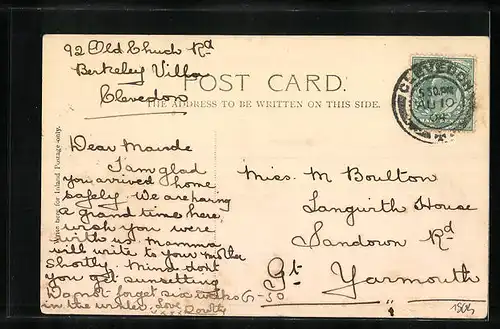 92 Old Chuch Rd
Berkeley Villa
Clevedon
POST CARD.
THE ADDRESS TO BE WRITTEN ON THIS SIDE.
CLEVEDON
5.30 PM
AU 10
Write here for Inland Postage only.
Dear Maude
I am glad
you arrived home
safely. We are having
a grand time here,
wish you were
with us. Mamma
will write to your mother
shortly. Mind dont
you get sunsetting
Do not forget six
in the
Love
Miss. M Boulton
Langwirth House
Sandown Rd
Gt. Yarmouth
1904